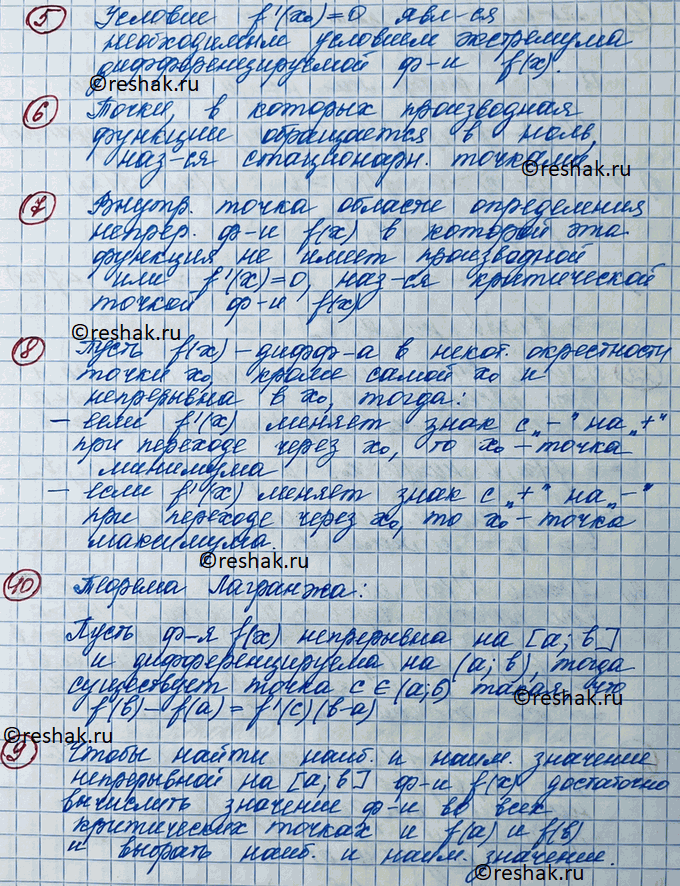 5 Условие f'(x₀)=0 явл-ся
необходимым условием экстремума
дифференцируемой ф-и f(x).
©reshak.ru
6 Точки, в которых производная
функции обращается в ноль,
наз-ся стационарн. точками.
©reshak.ru
7 Внутр. точка области определения
непрер. ф-и f(x) в которой эта
функция не имеет производной
или f'(x)=0, наз-ся критической
точкой ф-и f(x)
©reshak.ru
8 Пусть f(x) – дифф-а в некот. окрестности
точки x₀ кроме самой x₀ и
непрерывна в x₀, тогда:
– если f'(x) меняет знак с „–" на „+"
при переходе через x₀, то x₀ – точка
минимума
– если f'(x) меняет знак с „+" на „–"
при переходе через x₀, то x₀ – точка
максимума.
©reshak.ru
10 Теорема Лагранжа:
Пусть ф-я f(x) непрерывна на [a; b]
и дифференцируема на (a; b), тогда
существует точка c∈(a;b) такая что
f(b) – f(a) = f'(c)(b-a)
©reshak.ru
©reshak.ru
9 Чтобы найти наиб. и наим. значение
непрерывной на [a; b] ф-и f(x) достаточно
вычислить значение ф-и во всех
критических точках и f(a) и f(b)
и выбрать наиб. и наим. значение.
©reshak.ru